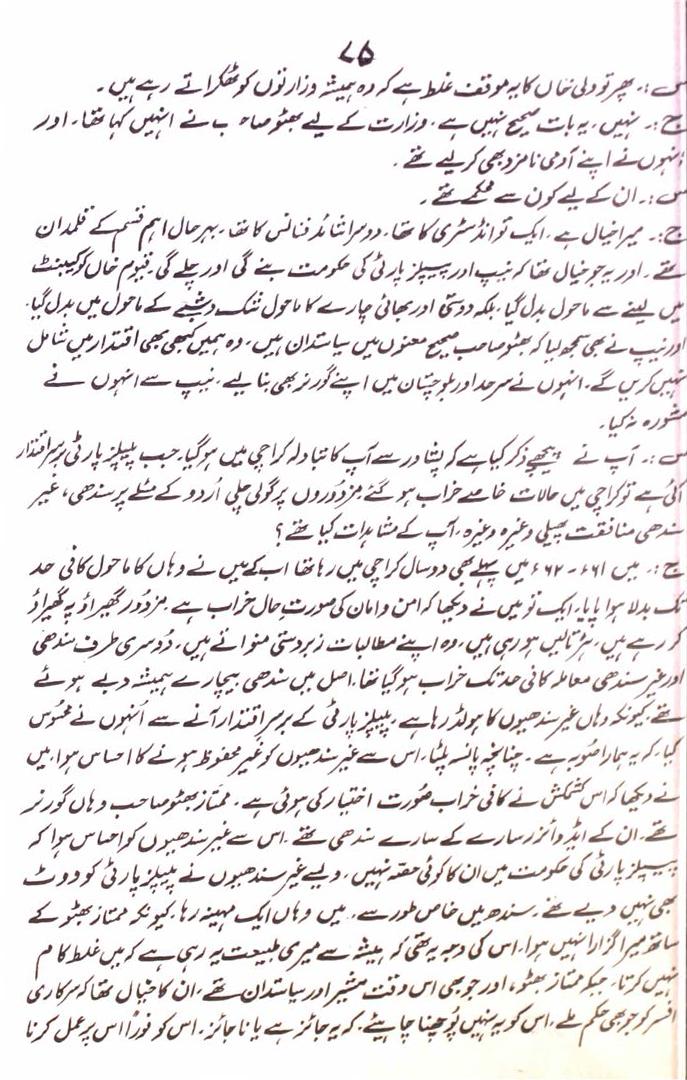 ۷۵
س:۔ پھر تو ولی خاں کا یہ موقف غلط ہے کہ وہ ہمیشہ وزارتوں کو ٹھکراتے رہے ہیں۔
ج:۔ نہیں۔ یہ بات صحیح نہیں ہے۔ وزارت کے لیے بھٹو صاحب نے انہیں کہا تھا۔ اور
انہوں نے اپنے آدمی نامزد بھی کر لیے تھے۔
س:۔ ان کے لیے کون سے محکمے تھے۔
ج:۔ میرا خیال ہے۔ ایک تو انڈسٹری کا تھا۔ دوسرا شائد فنانس کا تھا۔ بہرحال اہم قسم کے قلمدان
تھے۔ اور یہ جو خیال تھا کہ نیپ اور پیپلز پارٹی کی حکومت بنے گی اور چلے گی۔ قیوم خاں کو کیبنٹ
میں لینے سے ماحول بدل گیا۔ بلکہ دوستی اور بھائی چارے کا ماحول شک و شبے کے ماحول میں بدل گیا۔
اور نیپ نے بھی سمجھ لیا کہ بھٹو صاحب صحیح معنوں میں سیاستدان ہیں۔ وہ ہمیں کبھی بھی اقتدار میں شامل
نہیں کریں گے۔ انہوں نے سرحد اور بلوچستان میں اپنے گورنر بھی بنا لیے۔ نیپ سے انہوں نے
مشورہ نہ کیا۔
س:۔ آپ نے پیچھے ذکر کیا ہے کہ پشاور سے آپ کا تبادلہ کراچی میں ہو گیا۔ جب پیپلز پارٹی برسراقتدار
آئی ہے تو کراچی میں حالات خاصے خراب ہو گئے مزدوروں پر گولی چلی اُردو کے مسئلے پر سندھی، غیر
سندھی منافقت پھیلی وغیرہ وغیرہ۔ آپ کے مشاہدات کیا تھے؟
ج:۔ میں ۶۱ء - ۶۲ء میں پہلے بھی دو سال کراچی میں رہا تھا اب کے میں نے وہاں کا ماحول کافی حد
تک بدلا ہوا پایا۔ ایک تو میں نے دیکھا کہ امن و امان کی صورتِ حال خراب ہے مزدور گھیراؤ پہ گھیراؤ
کر رہے ہیں، ہڑتالیں ہو رہی ہیں، وہ اپنے مطالبات زبردستی منواتے ہیں۔ دُوسری طرف سندھی
اور غیر سندھی معاملہ کافی حد تک خراب ہو گیا تھا۔ اصل میں سندھی بیچارے ہمیشہ دبے ہوئے
تھے۔ کیونکہ وہاں غیر سندھیوں کا ہولڈ رہا ہے۔ پیپلز پارٹی کے برسراقتدار آنے سے اُنہوں نے محسُوس
کیا۔ کہ یہ ہمارا صُوبہ ہے۔ چنانچہ پانسہ پلٹا، اس سے غیر سندھیوں کو غیر محفوظ ہونے کا احساس ہوا، میں
نے دیکھا کہ اس کشمکش نے کافی خراب صُورت اختیار کی ہوئی ہے۔ ممتاز بھٹو صاحب وہاں گورنر
تھے۔ ان کے ایڈوائزر سارے کے سارے سندھی تھے۔ اس سے غیر سندھیوں کو احساس ہوا کہ
پیپلز پارٹی کی حکومت میں ان کا کوئی حصّہ نہیں، ویسے غیر سندھیوں نے پیپلز پارٹی کو ووٹ
بھی نہیں دیے تھے۔ سندھ میں خاص طور سے، میں وہاں ایک مہینہ رہا، کیونکہ ممتاز بھٹو کے
ساتھ میرا گزارا نہیں ہوا۔ اس کی وجہ یہ تھی کہ ہمیشہ سے میری طبیعت یہ رہی ہے کہ میں غلط کام
نہیں کرتا۔ جبکہ ممتاز بھٹو، اور جو بھی اس وقت مشیر اور سیاستدان تھے، ان کا خیال تھا کہ سرکاری
افسر کو جو بھی حکم ملے۔ اس کو یہ نہیں پُوچھنا چاہیئے۔ کہ یہ جائز ہے یا ناجائز۔ اس کو فوراً اس پر عمل کرنا